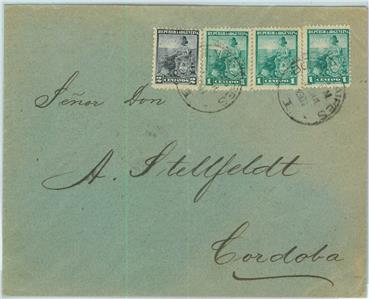 REPUBLICA ARGENTINA REPUBLICA ARGENTINA REPUBLICA ARGENTINA REPUBLICA ARGENTINA
2 CENTAVOS 2 1 CENTAVO 1 1 CENTAVO 1 1 CENTAVO 1
Señor Don
A. Stellfeldt
Cordoba